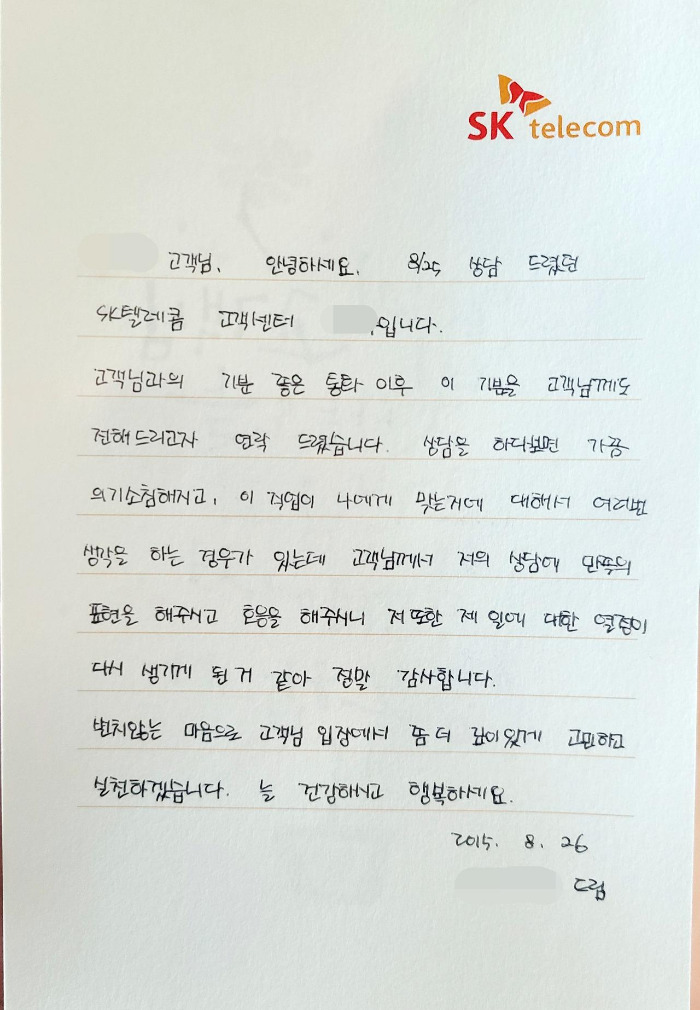 SK telecom
고객님, 안녕하세요. 8/25 상담 드렸던
SK텔레콤 고객센터 입니다.
고객님과의 기분 좋은 통화 이후 이 기분을 고객님께도
전해드리고자 연락 드렸습니다. 상담을 하다보면 가끔
의기소침해지고, 이 직업이 나에게 맞는지에 대해서 여러번
생각을 하는 경우가 있는데 고객님께서 저의 상담에 만족의
표현을 해주시고 호응을 해주시니 저 또한 제 일에 대한 열정이
다시 생기게 된 거 같아 정말 감사합니다.
변치않는 마음으로 고객님 입장에서 좀 더 깊이있게 고민하고
실천하겠습니다. 늘 건강하시고 행복하세요.
2015. 8. 26
드림